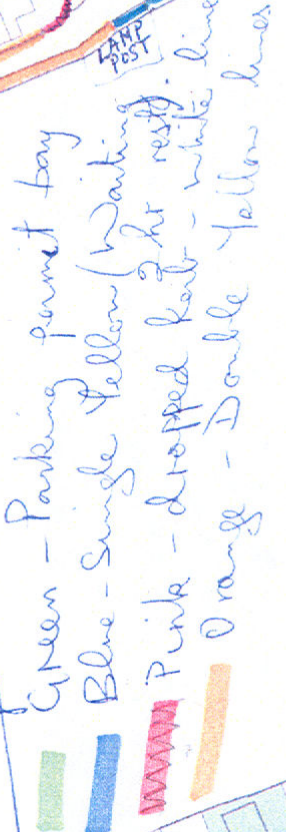 LAMP
POST
Green - Parking permit bay
Blue - Single Yellow (Waiting
2 hr restr.
Pink - dropped kerb - white line
Orange - Double Yellow lines